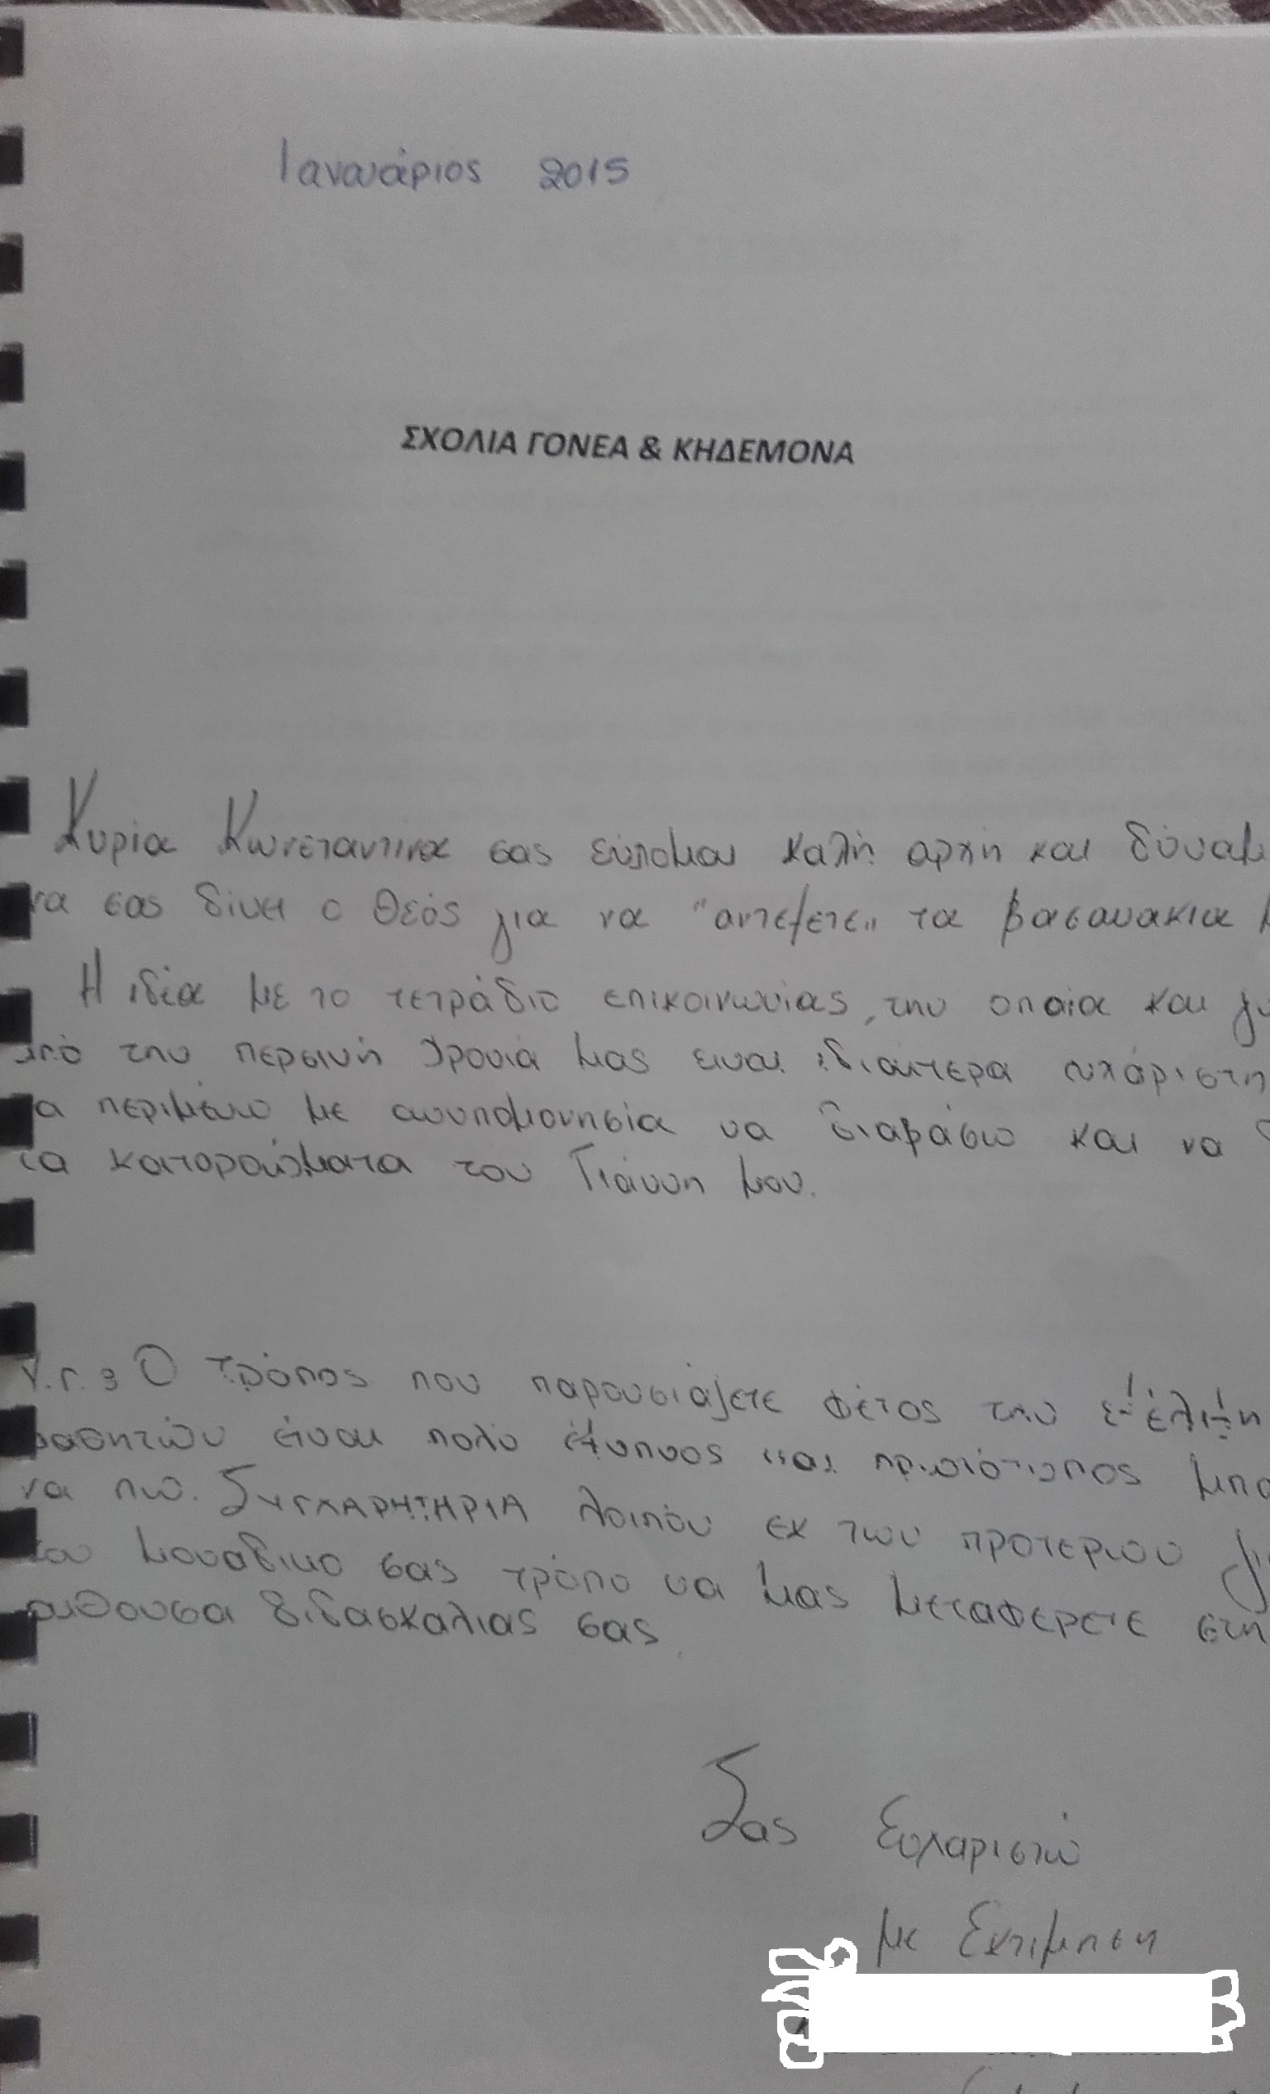 Ιανουάριος 2015
ΣΧΟΛΙΑ ΓΟΝΕΑ & ΚΗΔΕΜΟΝΑ
Κυρία Κωνσταντινα σας εύχομαι καλή αρχη και δύναμ
να σας δίνει ο Θεός για να "αντεξετε" τα βασανακια
Η ιδέα με το τετράδιο επικοινωνίας, την οποία και
από την περσινή χρονιά μας ειναι ιδιαιτερα
να περιμένω με ανυπομονησία να διαβάσω και να
τα κατορθώματα του Γιάννη μου.
Υ.Γ. Ο τρόπος που παρουσιάζετε φέτος την εξέλιξη
μαθητών είναι πολύ έξυπνος και πρωτότυπος
να πω. ΣΥΓΧΑΡΗΤΗΡΙΑ λοιπόν εκ των προτερων
τον μοναδικο σας τρόπο να μας μεταφερετε στη
αιθουσα διδασκαλιας σας
Σας Ευχαριστώ
με Εκτιμηση